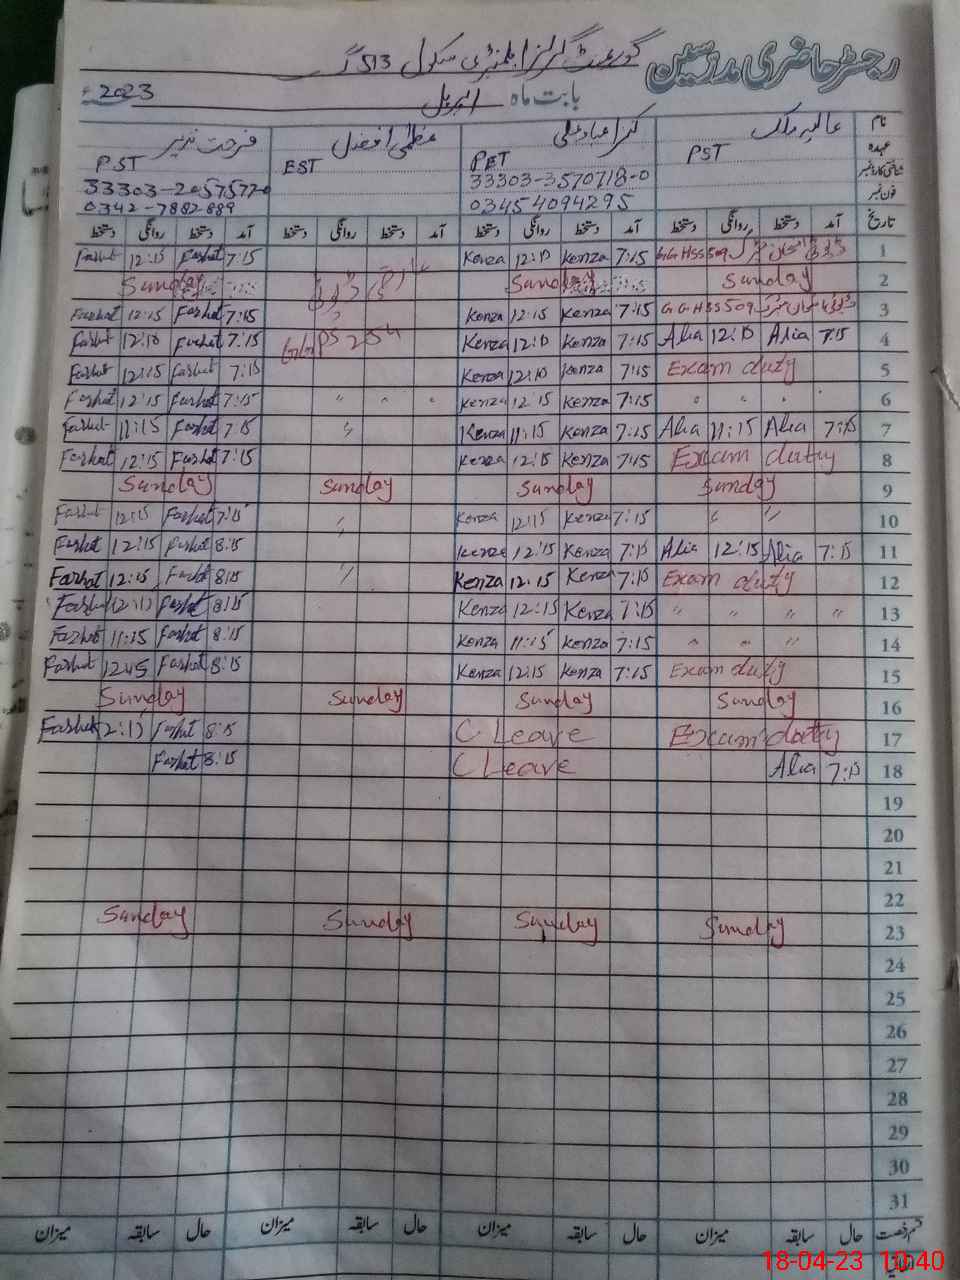 رجسٹر حاضری مدرسین گورنمنٹ گرلز ایلیمنٹری سکول 513
بابت ماہ اپریل 2023
نام عالیہ ملک عظمیٰ افضل فرحت نذیر
عہدہ PST PET EST PST
شناختی کارڈ نمبر 33303-3570718-0 33303-2057577-0
فون نمبر 03454094295 0342-7882889
تاریخ آمد دستخط روانگی دستخط آمد دستخط روانگی دستخط آمد دستخط روانگی دستخط آمد دستخط روانگی دستخط
Farhat 12:15 Farhat 7:15 Kenza 12:15 Kenza 7:15 GGHSS 509 1
Sunday Sunday Sunday 2
Farhat 12:15 Farhat 7:15 Kenza 12:15 Kenza 7:15 GGHSS 509 3
Farhat 12:15 Farhat 7:15 GGPS 254 Kenza 12:15 Kenza 7:15 Alia 12:15 Alia 7:15 4
Farhat 12:15 Farhat 7:15 Kenza 12:15 Kenza 7:15 Exam duty 5
Farhat 12:15 Farhat 7:15 " " " Kenza 12:15 Kenza 7:15 " " " 6
Farhat 11:15 Farhat 7:15 " Kenza 11:15 Kenza 7:15 Alia 11:15 Alia 7:15 7
Farhat 12:15 Farhat 7:15 Kenza 12:15 Kenza 7:15 Exam duty 8
Sunday Sunday Sunday Sunday 9
Farhat 12:15 Farhat 7:15 " Kenza 12:15 Kenza 7:15 " " 10
Farhat 12:15 Farhat 8:15 " Kenza 12:15 Kenza 7:15 Alia 12:15 Alia 7:15 11
Farhat 12:15 Farhat 8:15 " Kenza 12:15 Kenza 7:15 Exam duty 12
Farhat 12:15 Farhat 8:15 Kenza 12:15 Kenza 7:15 " " " " 13
Farhat 11:15 Farhat 8:15 Kenza 11:15 Kenza 7:15 " " " 14
Farhat 12:15 Farhat 8:15 Kenza 12:15 Kenza 7:15 Exam duty 15
Sunday Sunday Sunday Sunday 16
Farhat 12:15 Farhat 8:15 C Leave Exam duty 17
Farhat 8:15 C Leave Alia 7:15 18
19
20
21
22
Sunday Sunday Sunday Sunday 23
24
25
26
27
28
29
30
31
حال سابقہ میزان حال سابقہ میزان حال سابقہ میزان حال سابقہ میزان
18-04-23 10:40